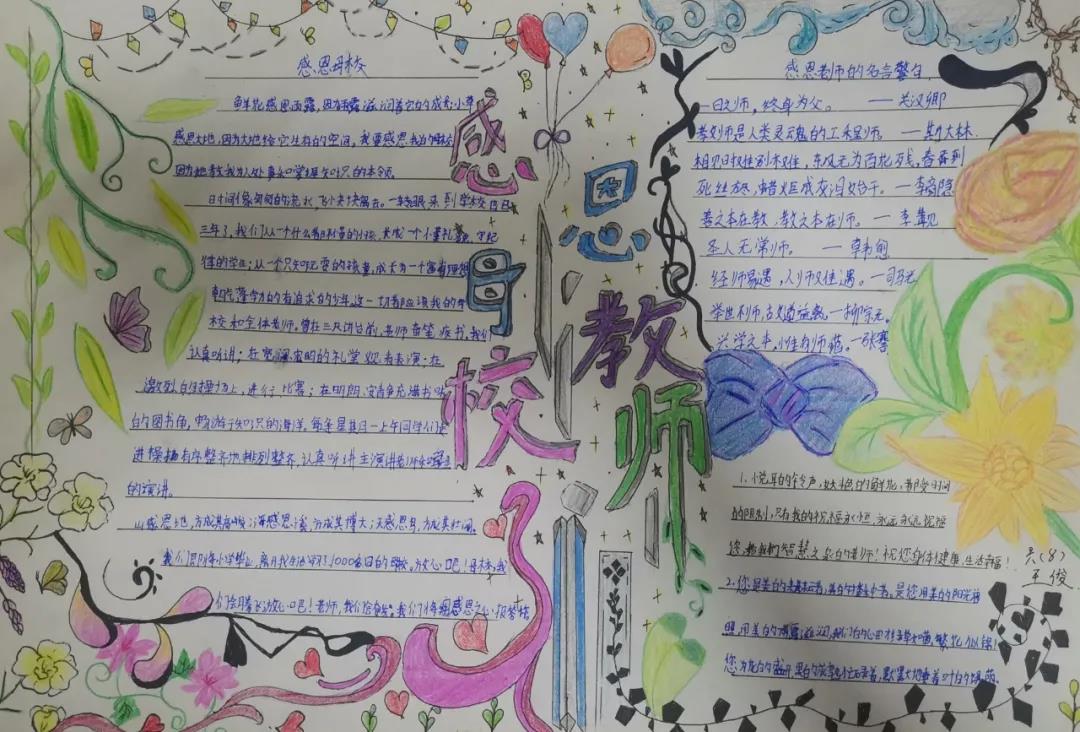 感恩母校
鲜花感恩雨露,因为雨露滋润着它的成长;小草
感恩大地,因为大地给它生存的空间,我要感恩我的母校
因为她教我为人处事和掌握知识的本领。
时间像匆匆的流水,飞快地离去。一转眼来到学校已
三年了,我们从一个什么都的小孩,变成一个懂礼貌、守纪
律的学生;从一个只知玩耍的孩童,成长为一个富有理想
朝气蓬勃的有追求的少年,这一切都应该我的母
校和全体老师。曾在三尺讲台前,老师奋笔疾书,我们
认真听讲;在宽阔、宏明的礼堂观看表演;在
激烈的操场上,进行比赛;在明阴、安静充满书
的图书角,畅游于知识的海洋。每年星期一上午同学们走
进操场有序整齐地排列整齐,认真听讲主演讲老师和学生
的演讲。
山感恩地,方成其高峻;海感恩溪,方成其博大;天感恩鸟,方成其壮阔。
我们明年小学毕业,离开我生活学习了1000多日的学校。放心吧!母校,我
们会自己放心吧!老师,我们给您我们将用感恩之心报答您
感恩母校
感恩教师
感恩老师的名言警句
一日为师,终身为父。 ——关汉卿
教师是人类灵魂的工程师。 —斯大林
相见时难别亦难,东风无力百花残,春蚕到
死丝方尽,蜡炬成灰泪始干。—李商隐
善之本在教,教之本在师。 — 李觏
圣人无常师。 — 韩愈
经师易遇,人师难遇。—司马光
举世不师,故道益 —柳宗元。
兴学之本,惟有师范。—张謇
1.小悦耳的铃声,妖艳的鲜花,都受时间
的限制,只有我的祝福永恒,永远永远祝福
您,给我们智慧之泉的老师!祝您身体健康,生活幸福!
2.您是美的耕耘者,美的播种者。是您用美的阳光普
照,用美的雨露滋润,我们的心田才绿草如茵,繁花似锦!
您为花的盛开,果的成熟忙碌着,默默地垂着叶的绿荫。
(8)
王俊